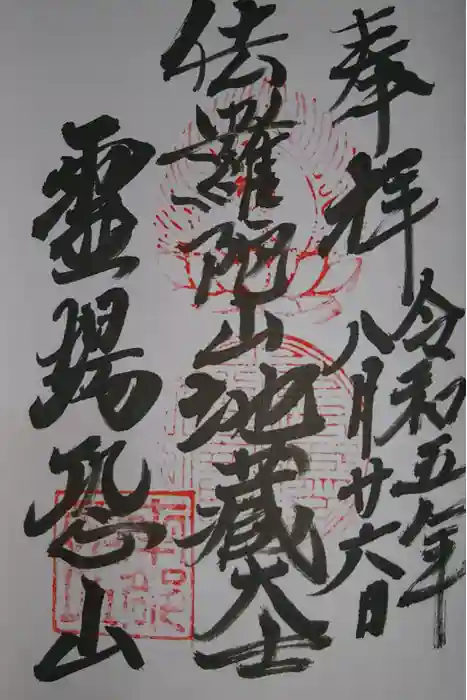 奉拝
令和五年
八月廿六日
佉羅陀山地蔵大士
霊場恐山